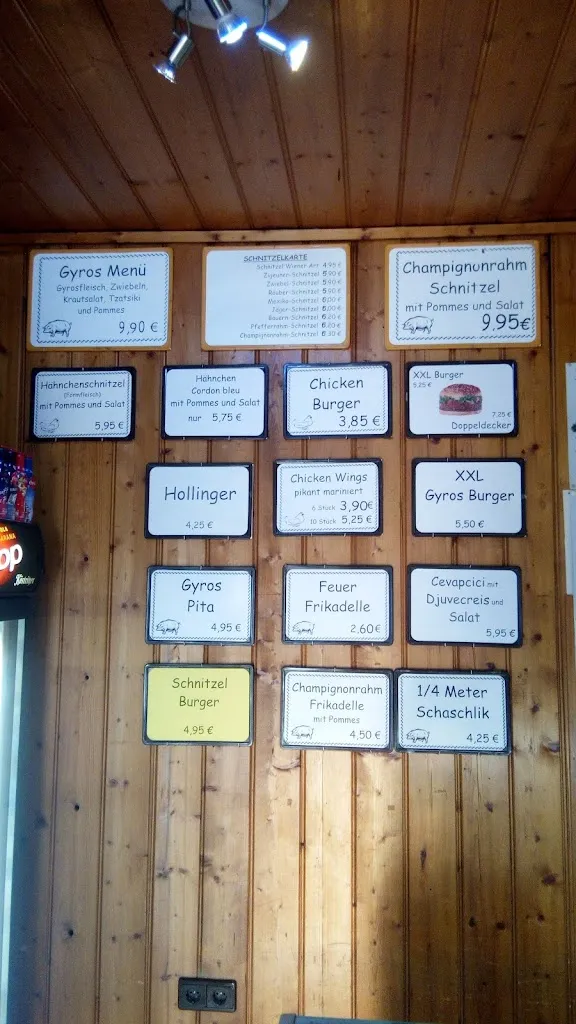 Gyros Menü
Gyrosfleisch, Zwiebeln,
Krautsalat, Tzatsiki
und Pommes
9,90 €
SCHNITZELKARTE
Schnitzel Wiener Art 4.95 €
Zigeuner-Schnitzel 5.90 €
Zwiebel-Schnitzel 5.90 €
Räuber-Schnitzel 5.90 €
Monika-Schnitzel 6.00 €
Jäger-Schnitzel 6.00 €
Bauern-Schnitzel 6.20 €
Pfefferrahm-Schnitzel 6.20 €
Champignonrahm-Schnitzel 6.20 €
Champignunrahm
Schnitzel
mit Pommes und Salat
9.95€
Hähnchenschnitzel
(Formfleisch)
mit Pommes und Salat
5,95 €
Hähnchen
Cordon bleu
mit Pommes und Salat
nur 5,75 €
Chicken
Burger
3,85 €
XXL Burger
5.25 €
7.25 €
Doppeldecker
Hollinger
4,25 €
Chicken Wings
pikant mariniert
6 Stück 3,90€
10 Stück 5,25 €
XXL
Gyros Burger
5,50 €
Gyros
Pita
4,95 €
Feuer
Frikadelle
2.60€
Cevapcici mit
Djuvecreis und
Salat
5,95 €
Schnitzel
Burger
4,95 €
Champignonrahm
Frikadelle
mit Pommes
4,50 €
1/4 Meter
Schaschlik
4,25 €